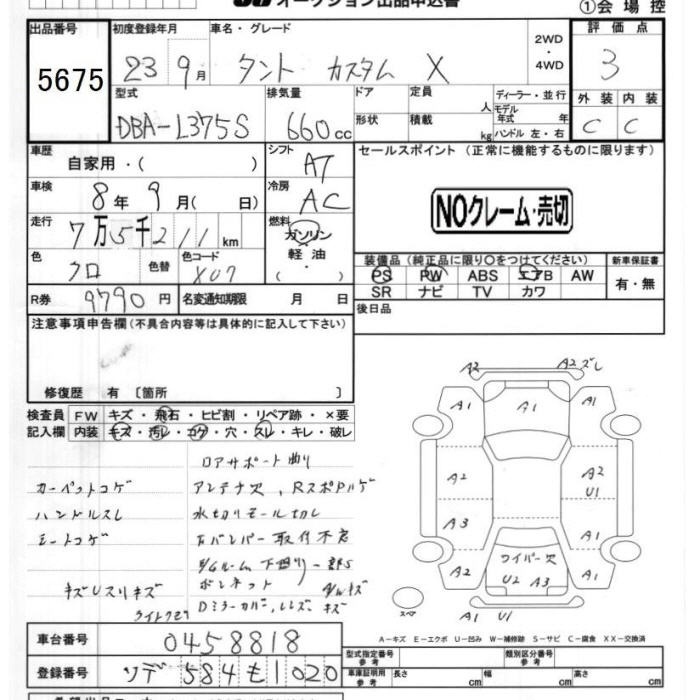 オークション出品申込書
①会場控
出品番号
5675
初度登録年月
23 9月
車名・グレード
タント カスタム X
2WD
・
4WD
評価点
3
型式
DBA-L375S
排気量
660cc
ドア
形状
定員
人
積載
kg
ディーラー・並行
モデル
年式 年
ハンドル 左・右
外装 内装
C C
車歴
自家用・( )
シフト
AT
セールスポイント (正常に機能するものに限ります)
車検
8年 9月( 日)
冷房
AC
NOクレーム・売切
走行
7万5千211km
燃料
ガソリン
軽油
・( )
色
クロ
色替
色コード
X07
装備品 (純正品に限り○をつけてください)
PS PW ABS エアB AW
SR ナビ TV カワ
新車保証書
有・無
R券
9790円
名変通知期限 月 日
後日品
注意事項申告欄 (不具合内容等は具体的に記入して下さい)
修復歴 有 〔箇所 〕
検査員
記入欄
FW キズ・飛石・ヒビ割・リペア跡・×要
内装 キズ・汚レ・コゲ・穴・スレ・キレ・破レ
ロアサポート曲り
カーペットコゲ
アンテナ欠、RスポPハゲ
ハンドルスレ
水切りモール切レ
シートコゲ
Rバンパー取付不良
下廻り一部S
ボンネット
キズUスリキズ
Dミラーカバー、レンズ、キズ
A2 A2 ズレ
A1 A1 A1
A2 A2 U1
A3 A1
A2 ワイパー欠 A1
U2 A3
スペア
A1 U1
A-キズ E-エクボ U-凹み W-補修跡 S-サビ C-腐食 XX-交換済
車台番号
0458818
登録番号
ソデ 584 モ 1020
型式指定番号
参考
類別区分番号
参考
車庫証明用
参考
長さ cm
幅 cm
高さ cm